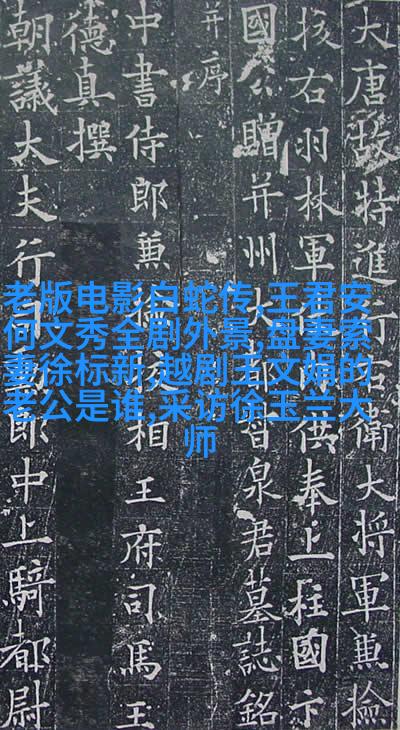 大唐故特進行右衛大將軍兼撿
校右羽林軍仗內供奉上柱國卞
國公贈并州大都督泉君墓誌銘
并序
中書侍郎兼撿校相王府司馬王
德真撰
朝議大夫行司勳郎中上騎都尉
老版电影白蛇传,王君安
何文秀全剧外景,盘妻索
妻徐标新,越剧王文娟的
老公是谁,采访徐玉兰大
师